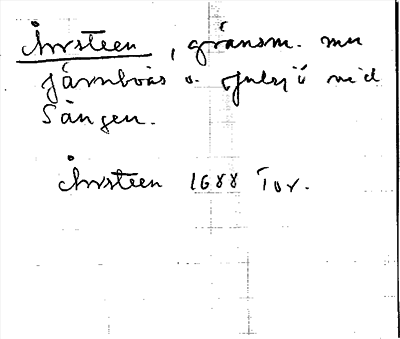 Årsteen, gränsm. mn
Järnboås o. Hjulsjö vid
Sången.
Årsteen 1688 Tor.